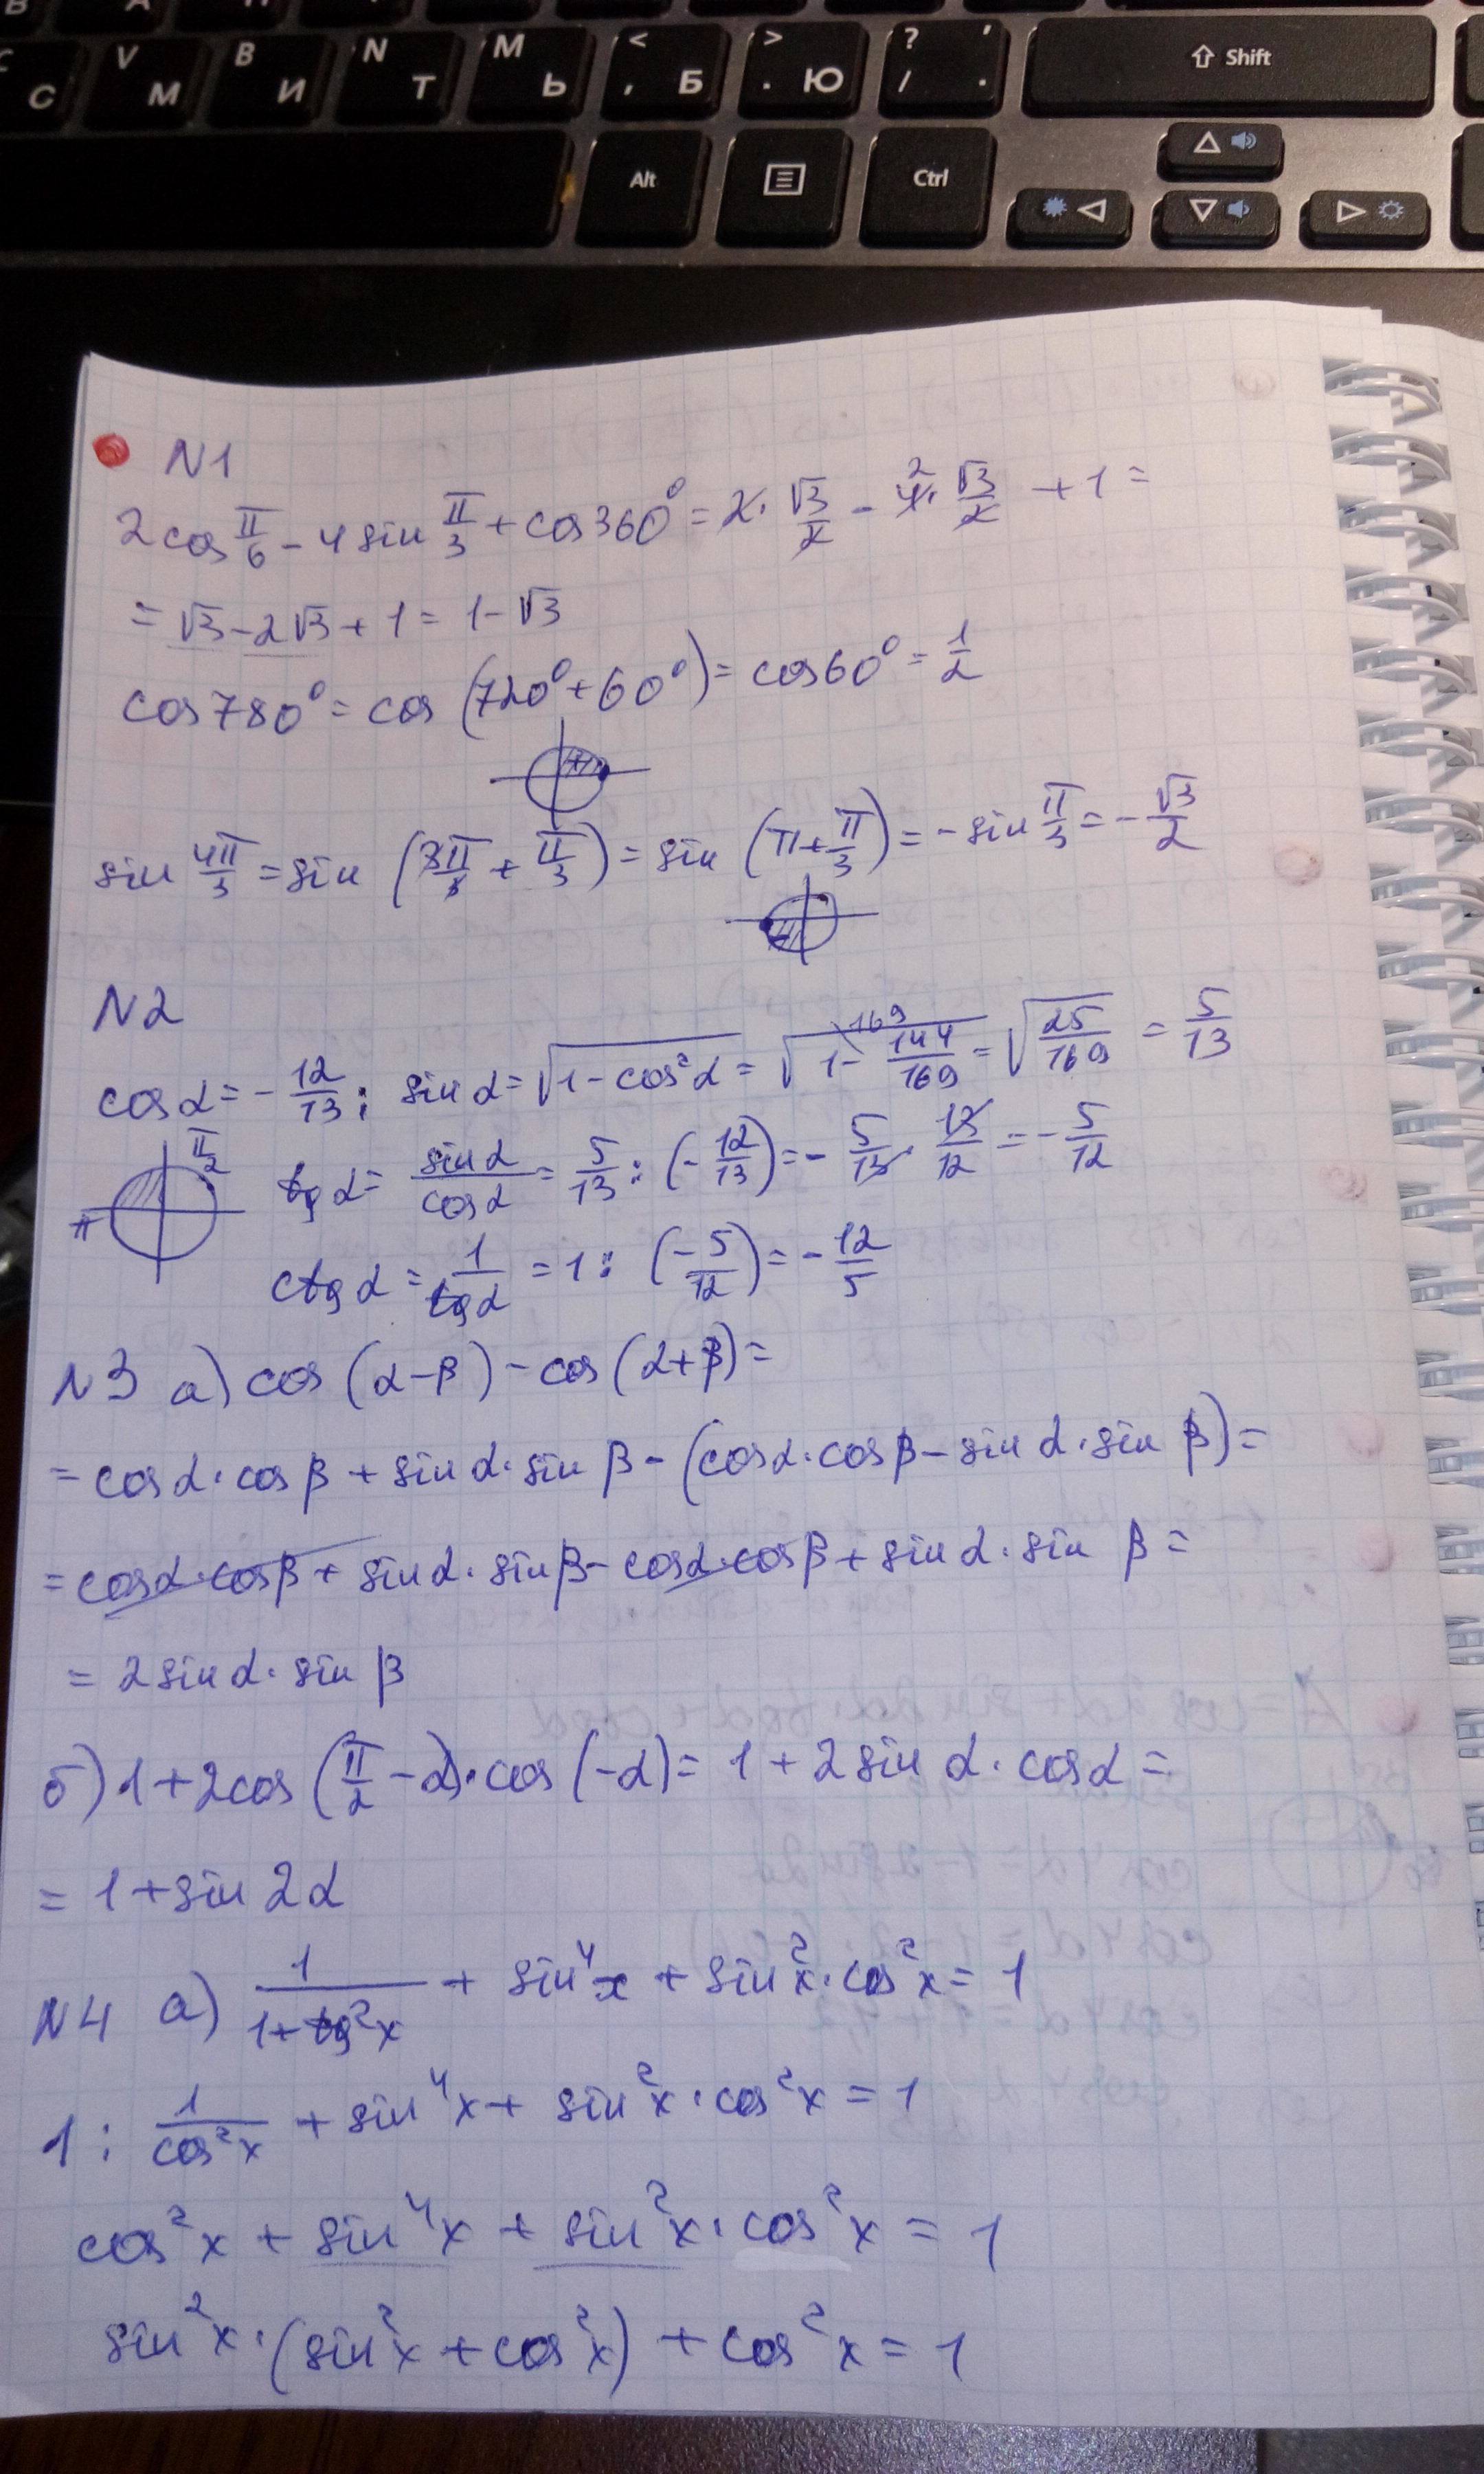 В А П
C С V М B И N Т M Ь < , Б > . Ю ? / , . Shift
Alt Ctrl
N1
2cos π/6 - 4sin π/3 + cos360° = 2· √3/2 - 4· 2 √3/2 + 1 =
= √3 - 2√3 + 1 = 1 - √3
cos780° = cos (720° + 60°) = cos60° = 1/2
+
sin 4π/3 = sin (3π/3 + π/3) = sin (π + π/3) = - sin π/3 = - √3/2
-
N2
cosα = - 12/13; sinα = √(1 - cos²α) = √(1 - 144/169) 169 = √(25/169) = 5/13
π/2
tgα = sinα/cosα = 5/13 : (- 12/13) = - 5/13 · 13/12 = - 5/12
π
ctgα = 1/tgα = 1 : (- 5/12) = - 12/5
N3 а) cos (α - β) - cos (α + β) =
= cosα · cosβ + sinα · sinβ - (cosα · cosβ - sinα · sinβ) =
= cosα · cosβ + sinα · sinβ - cosα · cosβ + sinα · sinβ =
= 2sinα · sinβ
б) 1 + 2cos (π/2 - α) · cos (-α) = 1 + 2sinα · cosα =
= 1 + sin2α
N4 а) 1/(1 + tg²x) + sin⁴x + sin²x · cos²x = 1
1 : 1/cos²x + sin⁴x + sin²x · cos²x = 1
cos²x + sin⁴x + sin²x · cos²x = 1
sin²x · (sin²x + cos²x) + cos²x = 1